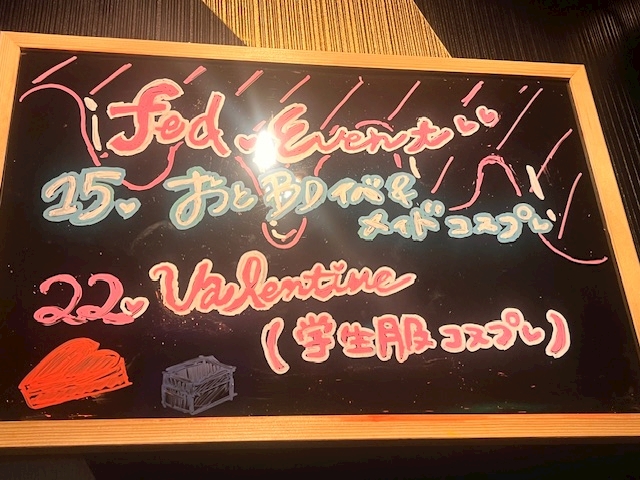 fed. Event
15. おとBDイベ&
メイドコスプレ
22. Valentine
(学生服コスプレ)